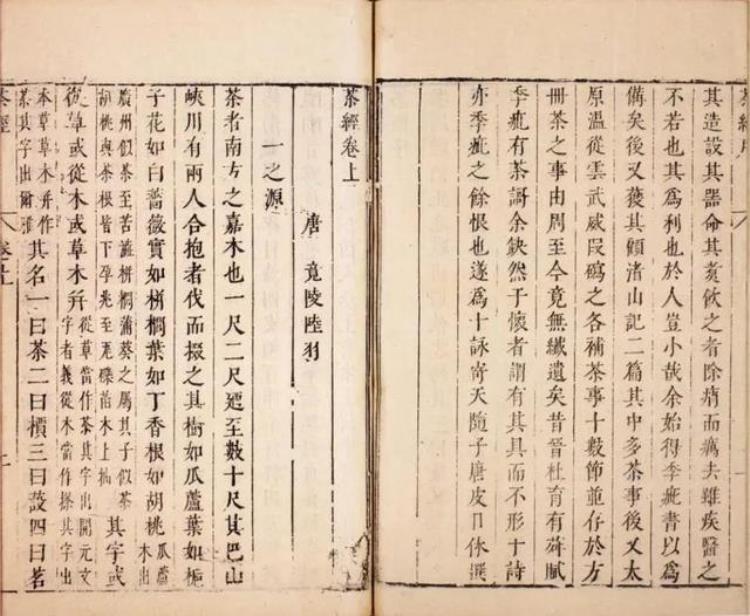 茶經序
其造設其器命其煑飲之者除痟而癘去雖疾醫之
不若也其爲利也於人豈小哉余始得季疵書以爲
備矣後又獲其顧渚山記二篇其中多茶事後又太
原溫從雲武威段磶之各補茶事十數節並存於方
冊茶之事由周至今竟無纖遺矣昔晉杜育有荈賦
季疵有茶謌余缺然于懷者謂有其具而不形于詩
亦季疵之餘恨也遂爲十詠寄天隨子唐皮日休撰
茶經卷上
唐 竟陵陸羽
一之源
茶者南方之嘉木也一尺二尺廼至數十尺其巴山
峽川有兩人合抱者伐而掇之其樹如瓜蘆葉如梔
子花如白薔薇實如栟櫚葉如丁香根如胡桃瓜蘆木出
廣州似茶至苦澁栟櫚蒲葵之屬其子似茶
胡桃與茶根皆下孕兆至瓦礫苗木上抽
其字或
從草或從木或草木并
從草當作茶其字出開元文
字者義從木當作㭘其字出
本草草木并作
茶其字出爾雅
其名一曰茶二曰檟三曰蔎四曰茗
茶經
卷上
一